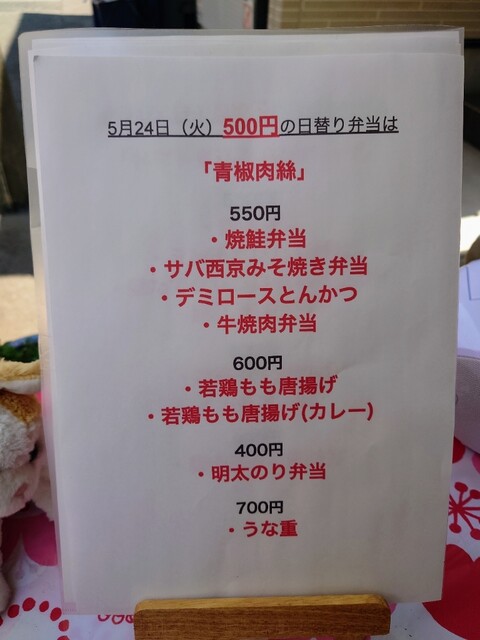 5月24日（火）500円の日替り弁当は
「青椒肉絲」
550円
・焼鮭弁当
・サバ西京みそ焼き弁当
・デミロースとんかつ
・牛焼肉弁当
600円
・若鶏もも唐揚げ
・若鶏もも唐揚げ(カレー)
400円
・明太のり弁当
700円
・うな重